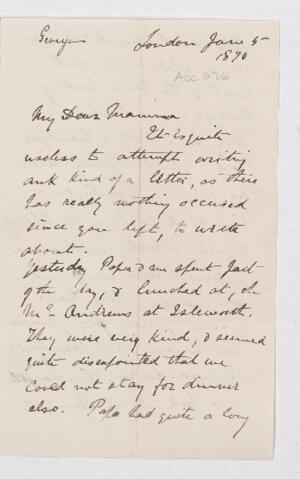 George
London June 5
1870
Acc. 576
My Dear Mamma
It is quite
useless to attempt writing
any kind of a letter, as there
has really nothing occured
since you left, to write
about.
Yesterday Papa & me spent part
of the day, & lunched at, the
Mc Andrews at Isleworth.
They were very kind, & seemed
quite disapointed that we
could not stay for dinner
also. Papa had quite a long